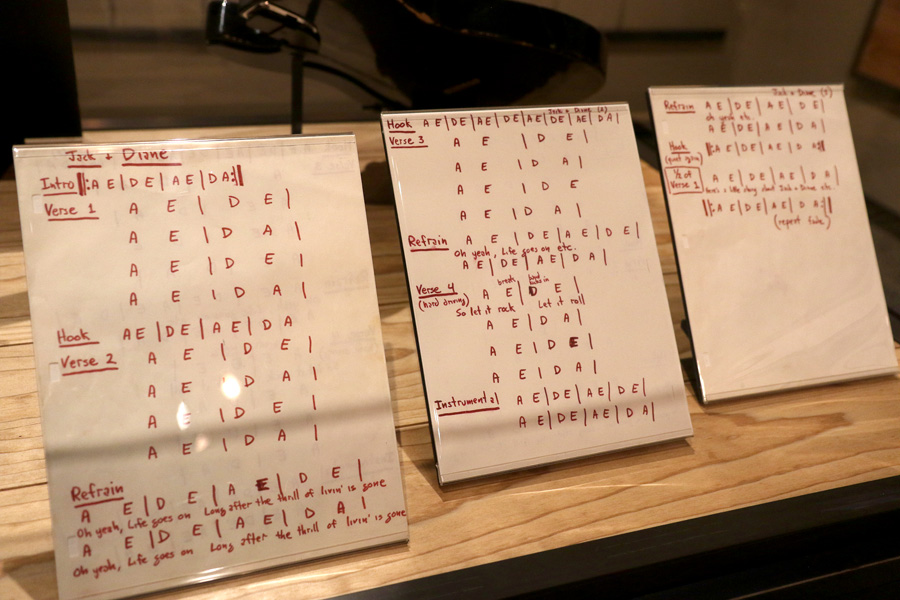 Jack + Diane
Intro ‖: A E | D E | A E | D A :‖
Verse 1 A E | D E |
A E | D A |
A E | D E |
A E | D A |
Hook A E | D E | A E | D A
Verse 2 A E | D E |
A E | D A |
A E | D E |
A E | D A |
Refrain
A E | D E | A E | D E |
Oh yeah, Life goes on Long after the thrill of livin' is gone
A E | D E | A E | D A |
Oh yeah, Life goes on Long after the thrill of livin' is gone
Jack + Diane (2)
Hook A E | D E | A E | D E | A E | D E | A E | D A |
Verse 3 A E | D E
A E | D A |
A E | D E
A E | D A |
Refrain A E | D E | A E | D E |
Oh yeah, Life goes on etc.
A E | D E | A E | D A |
break
Verse 4 A E | D E |
(hard driving) So let it rock Let it roll
A E | D A |
A E | D E |
A E | D A |
Instrumental A E | D E | A E | D E |
A E | D E | A E | D A |
Jack + Diane (3)
Refrain A E | D E | A E | D E |
oh yeah etc.
A E | D E | A E | D A |
Hook ‖: A E | D E | A E | D A :‖
(quiet again)
1/2 of A E | D E | A E | D A |
Verse 1 here's a little story about Jack + Diane etc.
‖: A E | D E | A E | D A :‖
(repeat fade)